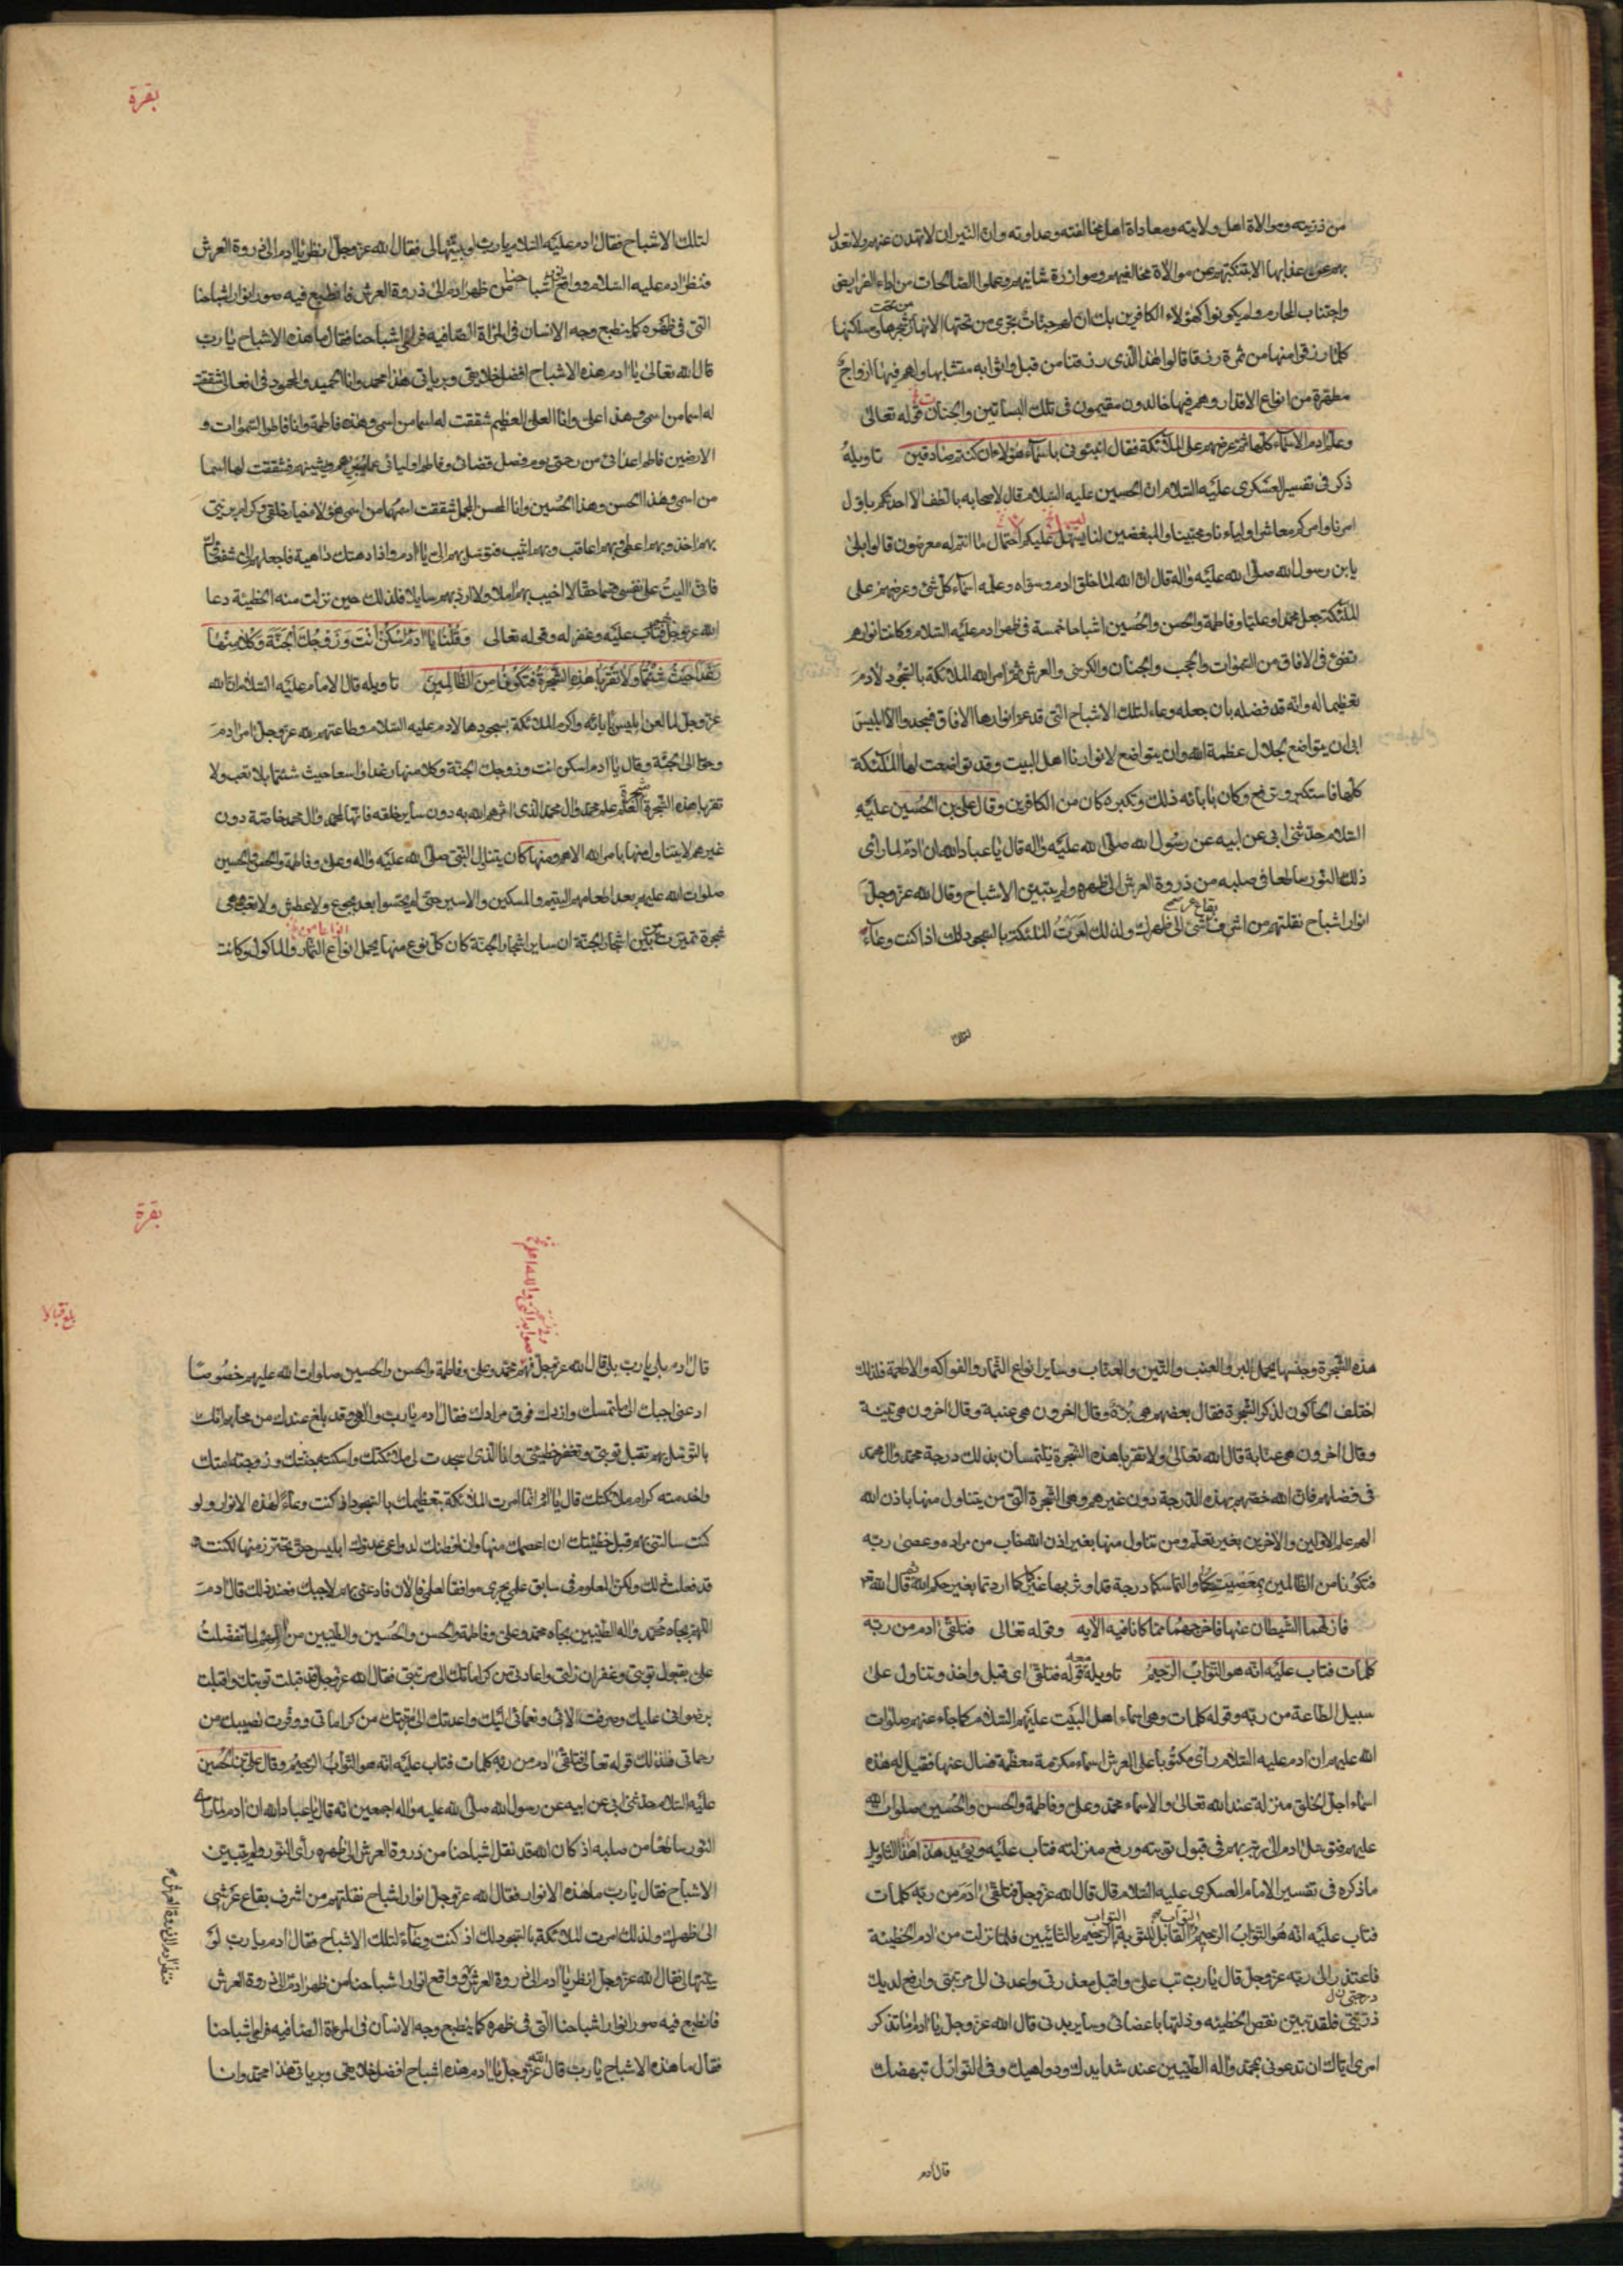 من ذريته وموالاة اهل ولايته ومعاداة اهل مخالفته وعداوته وان النيران لا تهدن عنهم ولا تعدل
بهم عن عذابها الا بتنكبهم عن موالاة مخالفيهم وموازرة شانيهم وعملوا الصالحات من اداء الفرايض
واجتناب المحارم ولم يكونوا كهؤلاء الكافرين بك ان لهم جنات تجرى من تحتها الانهار من تحت شجرها ومساكنها
كلما رزقوا منها من ثمرة رزقا قالوا هذا الذى رزقنا من قبل واتوا به متشابها ولهم فيها ازواج
مطهرة من انواع الاقذار وهم فيها خالدون مقيمون فى تلك البساتين والجنان قوله تعالى
وعلم ادم الاسماء كلها ثم عرضهم على الملئكة فقال انبئونى باسماء هؤلاء ان كنتم صادقين تاويله
ذكر فى تفسير العسكرى عليه السلام ان الحسين عليه السلام قال لاصحابه بالطف الا احدثكم باول
امرنا وامركم معاشر اولياءنا ومحبينا والمبغضين لنا ليسهل عليكم احتمال ما انتم له معرضون قالوا بلى
يابن رسول الله صلى الله عليه واله قال ان الله لما خلق ادم وسواه وعلمه اسماء كل شئ وعرضهم على
الملئكة جعل محمدا وعليا وفاطمة والحسن والحسين اشباحا خمسة فى ظهر ادم عليه السلام وكانت انوارهم
تضئ فى الافاق من السموات والحجب والجنان والكرسى والعرش ثم امر الله الملائكة بالسجود لادم
تعظيما له وانه قد فضله بان جعله وعاء لتلك الاشباح التى قد عم انوارها الافاق فسجدوا الا ابليس
ابى ان يتواضع لجلال عظمة الله وان يتواضع لانوارنا اهل البيت وقد تواضعت لها الملئكة
كلها فاستكبر وترفع وكان بابائه ذلك وتكبره كان من الكافرين وقال على بن الحسين عليه
السلام حدثنى ابى عن ابيه عن رسول الله صلى الله عليه واله قال يا عباد الله ان ادم لما راى
ذلك النور ساطعا فى صلبه من ذروة العرش الى ظهره ولم يتبين الاشباح وقال الله عز وجل
انوار اشباح نقلتهم من اشرف بقاع عرشى الى ظهرك ولذلك امرت الملئكة بالسجود لك اذا كنت وعاء
لتلك
بقرة
لتلك الاشباح فقال ادم عليه السلام يا رب لو بينتها لى فقال الله عز وجل انظر يا ادم الى ذروة العرش
فنظر ادم عليه السلام ووافع اشباحنا من ظهر ادم الى ذروة العرش فانطبع فيه صور انوار اشباحنا
التى فى ظهره كما ينطبع وجه الانسان فى المراة الصافيه فراى اشباحنا فقال ما هذه الاشباح يا رب
قال الله تعالى يا ادم هذه الاشباح افضل خلايقى وبرياتى هذا محمد وانا الحميد والمحمود فى افعالى شققت
له اسما من اسمى وهذا على وانا العلى العظيم شققت له اسما من اسمى وهذه فاطمة وانا فاطر السموات و
الارضين فاطم اعدائى من رحمتى يوم فصل قضائى وفاطم اوليائى عما يعرهم ويشينهم فشققت لها اسما
من اسمى وهذا الحسن وهذا الحسين وانا المحسن المجمل شققت اسمهما من اسمى هؤلاء خيار خلقى وكرام بريتى
بهم اخذ وبهم اعطى وبهم اعاقب وبهم اثيب فتوسل بهم الى يا ادم واذا دهتك داهية فاجعلهم الى شفعاك
فانى اليت على نفسى قسما حقا لا اخيب بهم املا ولا ارد بهم سايلا فلذلك حين نزلت منه الخطيئة دعا
الله عز وجل فتاب عليه وغفر له وقوله تعالى وقلنا يا ادم اسكن انت وزوجك الجنة وكلا منها
رغدا حيث شئتما ولا تقربا هذه الشجرة فتكونا من الظالمين تاويله قال الامام عليه السلام ان الله
عز وجل لما لعن ابليس بابائه واكرم الملائكة بسجودها لادم عليه السلام وطاعتهم لله عز وجل امر ادم
وحوا الى الجنة وقال يا ادم اسكن انت وزوجك الجنة وكلا منها رغدا واسعا حيث شئتما بلا تعب ولا
تقربا هذه الشجرة شجرة العلم علم محمد وال محمد الذى اثرهم الله به دون ساير خلقه فانها لمحمد وال محمد خاصة دون
غيرهم لا يتناول منها بامر الله الا هم ومنها كان يتناول النبى صلى الله عليه واله وعلى وفاطمة والحسن والحسين
صلوات الله عليهم بعد اطعامهم اليتيم والمسكين والاسير حتى لم يحسوا بعد بجوع ولا عطش ولا تعب وهى
شجرة تميزت من بين اشجار الجنة ان ساير اشجار الجنة كان كل نوع منها يحمل انواعا من الثمار والماكول وكانت
هذه الشجرة وجنسها يحمل البر والعنب والتين والعناب وساير انواع الثمار والفواكه والاطعمة فلذلك
اختلف الحاكون لذكر الشجرة فقال بعضهم هى برة وقال اخرون هى عنبة وقال اخرون هى تينة
وقال اخرون هى عنابة قال الله تعالى ولا تقربا هذه الشجرة يلتمسان بذلك درجة محمد وال محمد
فى فضلهم فان الله خصهم بهذه الدرجة دون غيرهم وهى الشجرة التى من يتناول منها باذن الله
الهم علم الاولين والاخرين بغير تعلم ومن تناول منها بغير اذن الله خاب من مراده وعصى ربه
فتكونا من الظالمين بمعصيتكما والتماسكما درجة قد اوثر بها غيركما كما اردتما بغير حكم الله ثم قال الله تع
فازلهما الشيطان عنها فاخرجهما مما كانا فيه الايه وقوله تعالى فتلقى ادم من ربه
كلمات فتاب عليه انه هو التواب الرحيم تاويله معنى قوله فتلقى اى قبل واخذ وتناول على
سبيل الطاعة من ربه وقوله كلمات وهى اسماء اهل البيت عليهم السلام كما جاء عنهم صلوات
الله عليهم ان ادم عليه السلام راى مكتوبا على العرش اسماء مكرمة معظمة فسال عنها فقيل له هذه
اسماء اجل الخلق منزلة عند الله تعالى والاسماء محمد وعلى وفاطمة والحسن والحسين صلوات الله
عليهم فتوسل ادم الى ربه بهم فى قبول توبته ورفع منزلته فتاب عليه ويؤيد هذا التاويل
ما ذكره فى تفسير الامام العسكرى عليه السلام قال قال الله عز وجل فتلقى ادم من ربه كلمات
فتاب عليه انه هو التواب الرحيم التواب القابل للتوبة الرحيم بالتائبين فلما نزلت من ادم الخطيئة
فاعتذر الى ربه عز وجل قال يا رب تب على واقبل معذرتى واعدنى الى مرتبتى وارفع لديك
درجتى
فلقد تبين نقص الخطيئه وذلتها باعضائى وساير بدنى قال الله عز وجل يا ادم اما تذكر
امرى اياك ان تدعونى بمحمد واله الطيبين عند شدايدك ودواهيك وفى النوازل تبهضك
قال ادم
بقرة
بلغ قبالا
قال ادم بلى يا رب بلى قال الله عز وجل فبهم بمحمد وعلى وفاطمة والحسن والحسين صلوات الله عليهم خصوصا
ادعنى اجبك الى ملتمسك وازدك فوق مرادك فقال ادم يا رب والهى وقد بلغ عندك من محلهم انك
بالتوسل بهم تقبل توبتى وتغفر خطيئتى وانا الذى اسجدت لى ملائكتك واسكنته جنتك وزوجته امتك
واخدمته كرام ملائكتك قال يا ادم انما امرت الملائكة بتعظيمك بالسجود اذ كنت وعاء لهذه الانوار ولو
كنت سالتنى بهم قبل خطيئتك ان اعصمك منها وان افطنك لدواعى عدوك ابليس حتى تحترز منها لكنت
قد فعلت ذلك ولكن المعلوم فى سابق علمى يجرى موافقا لعلمى فالان فادعنى بهم لاجبك فعند ذلك قال ادم
اللهم بجاه محمد واله الطيبين بجاه محمد وعلى وفاطمة والحسن والحسين والطيبين من الهم لما تفضلت
على بقبول توبتى وغفران زلتى واعادتى من كراماتك الى مرتبتى فقال الله عز وجل قد قبلت توبتك واقبلت
برضوانى عليك وصرفت الائى ونعمائى اليك واعدتك الى مرتبتك من كراماتى ووفرت نصيبك من
رحماتى فلذلك قوله تعالى فتلقى ادم من ربه كلمات فتاب عليه انه هو التواب الرحيم وقال على بن الحسين
عليه السلام حدثنى ابى عن ابيه عن رسول الله صلى الله عليه واله اجمعين انه قال يا عباد الله ان ادم لما راى
النور ساطعا من صلبه اذ كان الله قد نقل اشباحنا من ذروة العرش الى ظهره راى النور ولم يتبين
الاشباح فقال يا رب ما هذه الانوار فقال الله عز وجل انوار اشباح نقلتهم من اشرف بقاع عرشى
الى ظهرك ولذلك امرت الملائكة بالسجود لك اذ كنت وعاء لتلك الاشباح فقال ادم يا رب لو
بينتها لى فقال الله عز وجل انظر يا ادم الى ذروة العرش وواقع انوار اشباحنا من ظهر ادم الى ذروة العرش
فانطبع فيه صور انوار اشباحنا التى فى ظهره كما ينطبع وجه الانسان فى المراة الصافيه فراى اشباحنا
فقال ما هذه الاشباح يا رب قال الله عز وجل يا ادم هذه اشباح افضل خلايقى وبرياتى هذا محمد وانا
فنظر ادم الى ذروة العرش